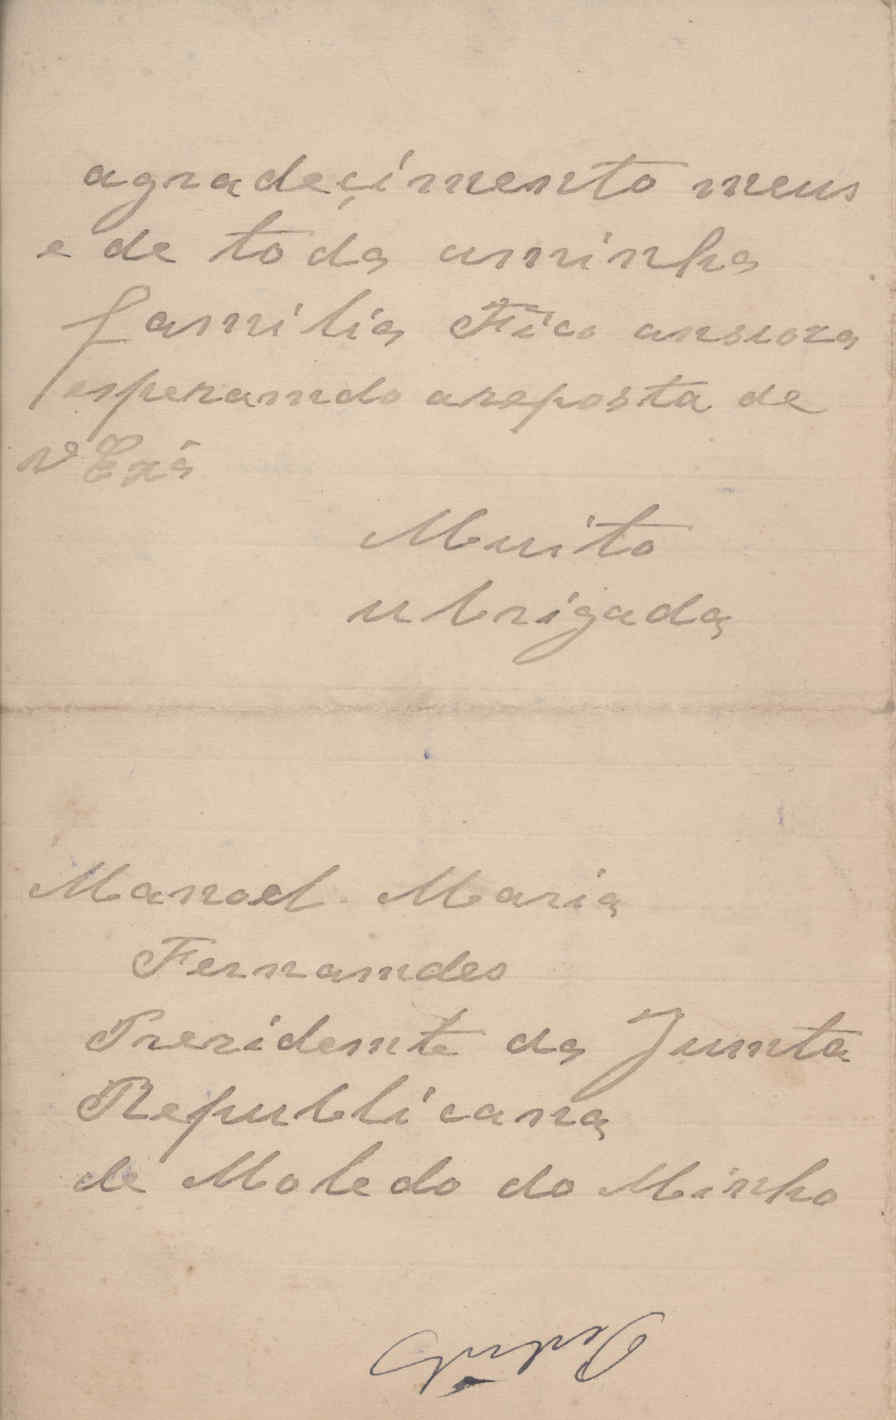 agradeçimento meus
e de toda aminha
familia Fico anscoza
esperamdo areposta de
V Exª
Muito
ubrigada
Manoel Maria
Fernamdes
Prezidemte da Jumta
Republicana
de Moledo do Minho